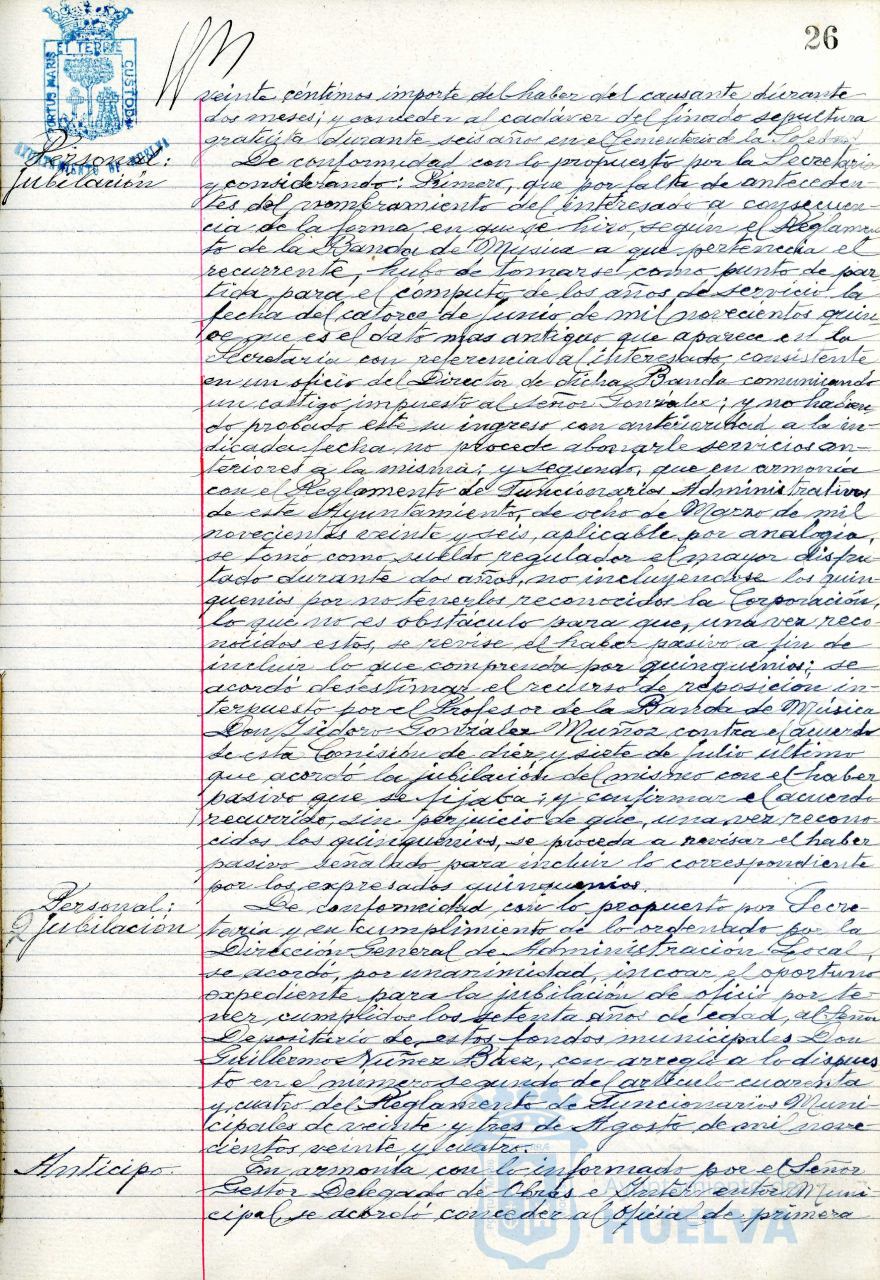 26
PORTUS MARIS ET TERRE CUSTODIA
AYUNTAMIENTO DE HUELVA
veinte céntimos importe del haber del causante durante
dos meses; y conceder al cadaver del finado sepultura
gratuita durante seis años en el Cementerio de la Soledad.
Personal:
Jubilación
De conformidad con lo propuesto por la Secretaria
y considerando: Primero, que por falta de anteceden-
tes del nombramiento del interesado a consecuen-
cia de la forma en que se hizo, según el Reglamen-
to de la Banda de Música a que pertenecia el
recurrente, hubo de tomarse como punto de par-
tida para el cómputo de los años de servicio la
fecha del catorce de Junio de mil novecientos quin-
ce que es el dato mas antiguo que aparece en la
Secretaría con referencia al interesado consistente
en un oficio del Director de dicha Banda comunicando
un castigo impuesto al Señor Gonzalez; y no habien-
do probado este su ingreso con anterioridad a la in-
dicada fecha no procede abonarle servicios an-
teriores a la misma; y segundo, que en armonía
con el Reglamento de Funcionarios Administrativos
de este Ayuntamiento, de ocho de Marzo de mil
novecientos veinte y seis, aplicable por analogía,
se tomó como sueldo regulador el mayor disfru-
tado durante dos años, no incluyendose los quin-
quenios por no tenerlos reconocidos la Corporación,
lo que no es obstáculo para que, una vez reco-
nocidos estos, se revise el haber pasivo a fin de
incluir lo que comprenda por quinquenios; se
acordó desestimar el recurso de reposición in-
terpuesto por el Profesor de la Banda de Música
Don Isidoro Gonzalez Muñoz contra el acuerdo
de esta Comisión de diez y siete de Julio último
que acordó la jubilación del mismo con el haber
pasivo que se fijaba; y confirmar el acuerdo
recurrido, sin perjuicio de que, una vez recono-
cidos los quinquenios, se proceda a revisar el haber
pasivo señalado para incluir lo correspondiente
por los expresados quinquenios.
Personal:
2 Jubilación
De conformidad con lo propuesto por Secre-
taría y en cumplimiento de lo ordenado por la
Dirección General de Administración Local,
se acordó, por unanimidad, incoar el oportuno
expediente para la jubilación de oficio por te-
ner cumplidos los setenta años de edad, al Señor
Depositario de estos fondos municipales Don
Guillermo Núñez Báez, con arreglo a lo dispues-
to en el número segundo del artículo cuarenta
y cuatro del Reglamento de Funcionarios Muni-
cipales de veinte y tres de Agosto de mil nove-
cientos veinte y cuatro.
Anticipo.
En armonía con lo informado por el Señor
Gestor Delegado de Obras e Interventor Muni-
cipal, se acordó conceder al Oficial de primera
Ayuntamiento de
HUELVA